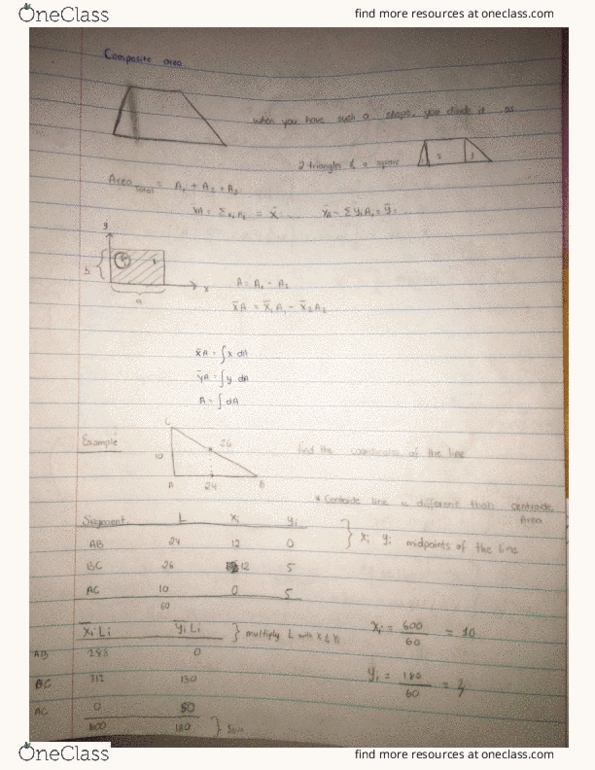 OneClass find more resources at oneclass.com
Composite area
when you have such a shape, you divide it as
2 triangles & a square
Area Total = A₁ + A₂ + A₃
x̄A = Σ xᵢAᵢ = x̄ ... ȳA = Σ yᵢAᵢ = ȳ ...
y
b
x
a
A = A₁ - A₂
x̄A = x̄₁A₁ - x̄₂A₂
x̄A = ∫x dA
ȳA = ∫y dA
A = ∫dA
Example
C
26
10
A 24 B
find the coordinates of the line
* Centroide line is different than centroide Area
Segment L xᵢ yᵢ
AB 24 12 0
BC 26 12 5
AC 10 0 5
60
} xᵢ yᵢ midpoints of the line
x̄ᵢLᵢ ȳᵢLᵢ } multiply L with x & y
AB 288 0
BC 312 130
AC 0 50
600 180 } Sum
xᵢ = 600/60 = 10
yᵢ = 180/60 = 3
OneClass find more resources at oneclass.com